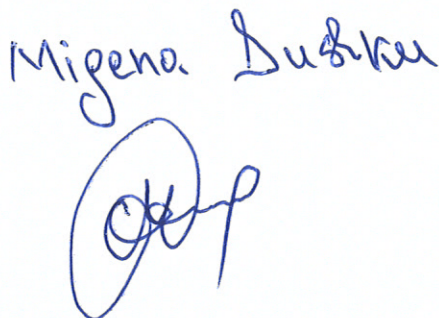 Migena Dushku